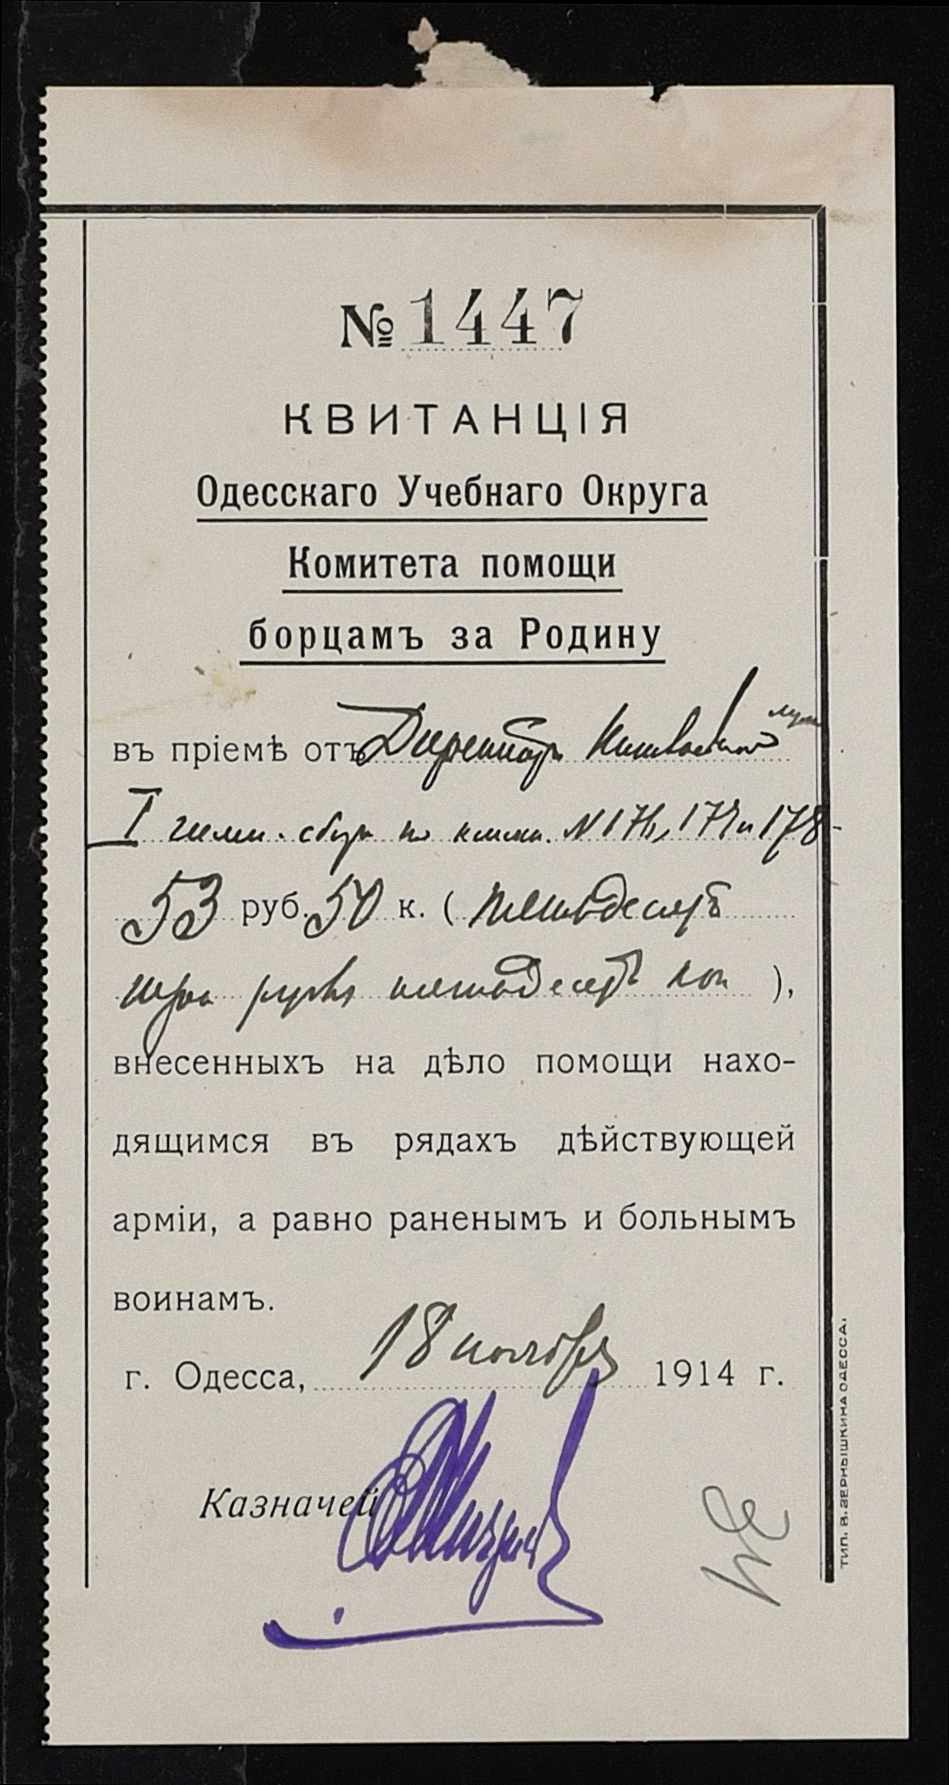 № 1447
КВИТАНЦІЯ
Одесскаго Учебнаго Округа
Комитета помощи
борцамъ за Родину
въ пріемѣ отъ Директора Кишиневской муж.
I гимн. сбора по книж. N 171, 177 и 178
53 руб. 50 к. ( пятьдесятъ
три рубля пятьдесятъ коп ),
внесенныхъ на дѣло помощи нахо-
дящимся въ рядахъ дѣйствующей
арміи, а равно раненымъ и больнымъ
воинамъ.
г. Одесса, 18 ноября 1914 г.
Казначей
ТИП. В. ЗЕРНЫШКИНА ОДЕССА.